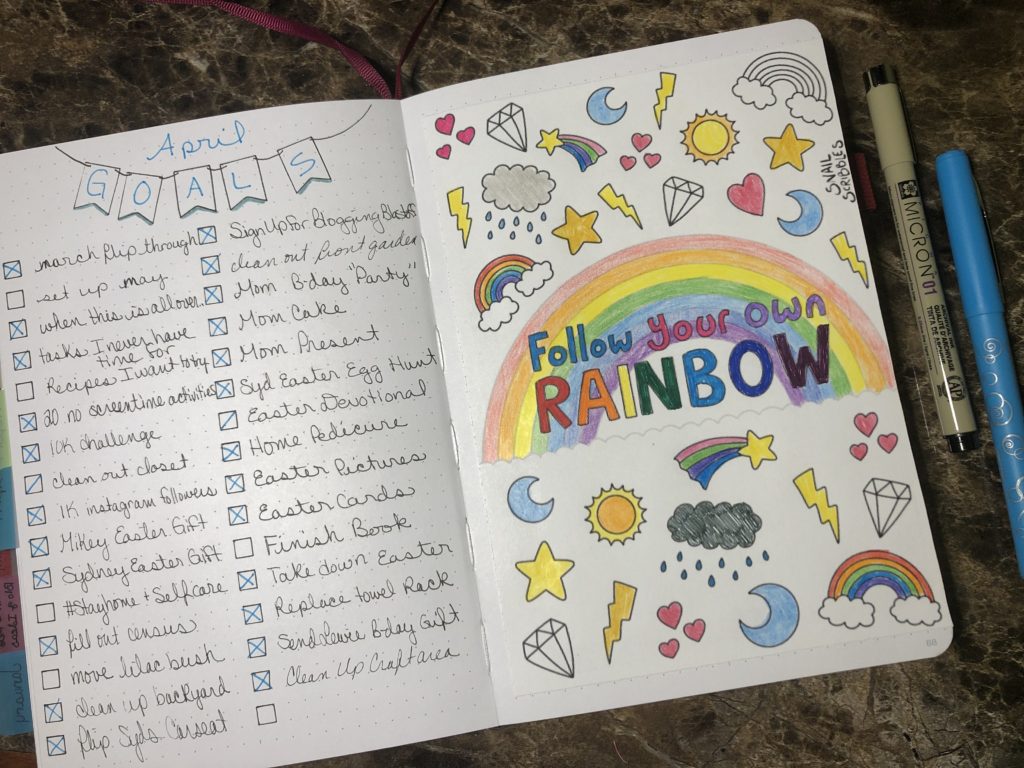 April
GOALS
march flip through
set up may
when this is all over
tasks I never have
time for
Recipes I want to try
20 no screentime activities
10K challenge
clean out closet
1K instagram followers
Mikey Easter Gift
Sydney Easter Gift
#Stayhome + Selfcare
fill out census
move lilac bush
clean up backyard
flip Syds Carseat
Sign Up For Blogging
clean out front garden
Mom B-day "Party"
Mom Cake
Mom Present
Syd Easter Egg Hunt
Easter Devotional
Home Pedicure
Easter Pictures
Easter Cards
Finish Book
Take down Easter
Replace towel Rack
Send B-day Gift
Clean Up Craft area
SNAIL
SCRIBBLES
Follow your own
RAINBOW
88
MICRON 01